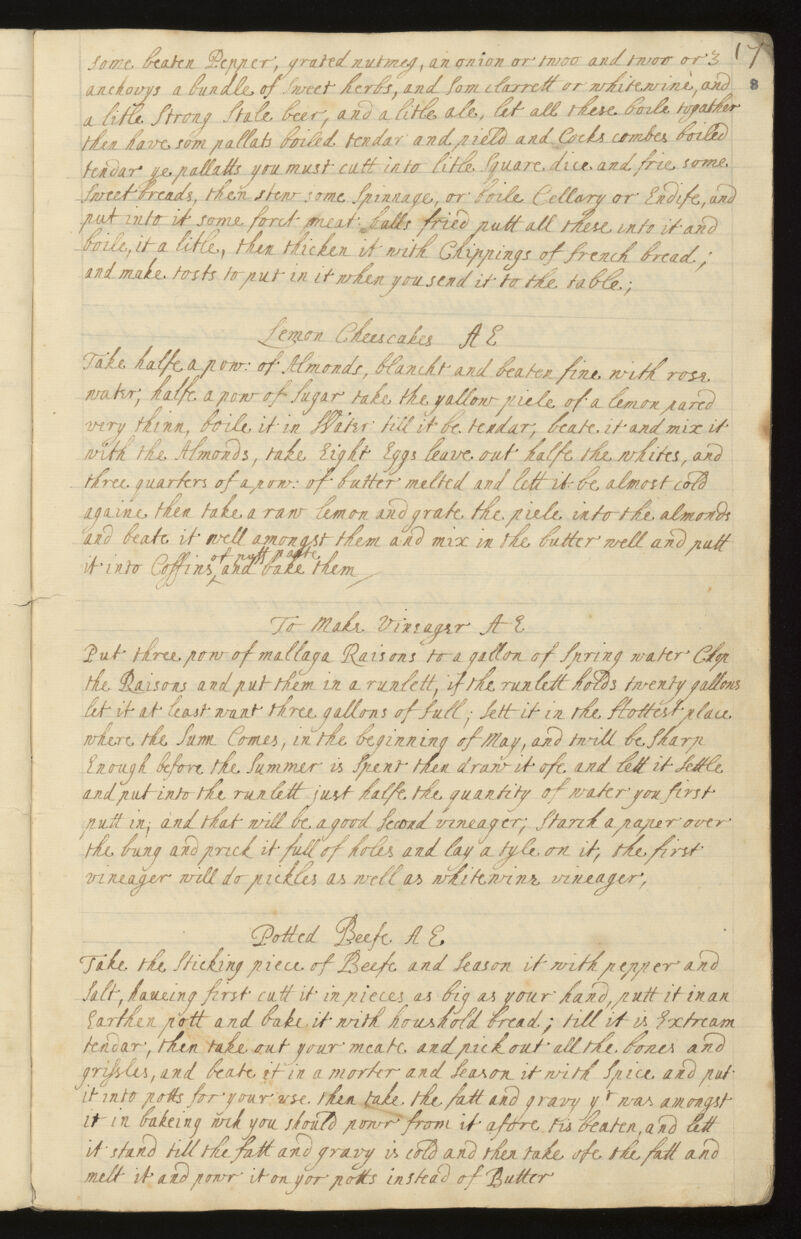 17
8
some beaten Pepper, grated nutmeg, an onion or twoo and twoo or 3
anchovys a bundle of Sweet herbs, and som clarrett or whitewine, and
a litle Strong Stale beer, and a litle ale, let all these boile togather
then have som pallats boiled tendar and pield and Cocks combes boiled
tendar ye pallatts you must cutt into litle Square dice and frie some
Sweet breads, then stew some Spinnage, or boile Cellary or Endife, and
put into it some forct meat balls fried putt all these into it and
boile, it a litle, then thicken it with Chippings of french bread;
and make tosts to put in it when you send it to the table;
Lemon Cheescakes A E
Take halfe a pow: of Almonds, blancht and beaten fine with rose
water, halfe a pow of Sugar take the yallow piele of a lemon pared
very thinn, boile it in Water till it be tendar, beate it and mix it
with the Almonds, take Eight Eggs leave out halfe the whites, and
three quarters of a pow: of butter melted and lett it be almost cold
againe then take a raw lemon and grate the piele into the almonds
and beate it well amongst them and mix in the butter well and putt
of puff paste
it into Coffins, and bake them
To Make Vineager A E
Put three pow of mallaga Raisons to a gallon of Spring water Chop
the Raisons and put them in a runlett, if the runlett holds twenty gallons
let it at least want three gallons of full; Sett it in the Hottest place
where the Sunn Comes, in the beginning of May, and twill be Sharp
Enough before the Summer is Spent then draw it ofe and lett it Settle
and put into the runlett just halfe the quantity of water you first
putt in; and that will be a good Second vineager; Starch a paper over
the bung and prick it full of holes and lay a tyle on it, the first
vineager will do pickles as well as whitewine vineager,
Potted Beefe A E
Take the Sticking piece of Beefe and Season it with pepper and
Salt, haveing first cutt it in pieces as big as your hand, putt it in an
Earthen pott and bake it with houshold bread; till it is Extream
tendar, then take out your meate and pick out all the bones and
grissles, and beate it in a morter and Season it with Spice and put
it into potts for your use then take the fatt and gravy yt was amongst
it in bakeing wch you should powr from it afore tis beaten, and lett
it stand till the fatt and gravy is cold and then take ofe the fatt and
melt it and powr it on yor potts instead of Butter